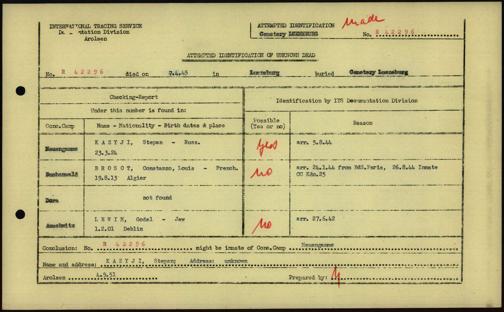 INTERNATIONAL TRACING SERVICE
Documentation Division
Arolsen
ATTEMPTED IDENTIFICATION made
Cemetery LUENEBURG No. R 42296
ATTEMPTED IDENTIFICATION OF UNKNOWN DEAD
No. R 42296 died on 7.4.45 in Lueneburg buried Cemetery Lueneburg
Checking-Report
Under this number is found in:
Identification by ITS Documentation Division
Conc.Camp
Name - Nationality - Birth date & place
Possible (Yes or no)
Reason
Neuengamme
KAZYJI, Stepan - Russ.
23.3.24
yes
arr. 5.8.44
Buchenwald
BROSOT, Constanzo, Louis - French.
19.8.13 Algier
no
arr. 24.1.44 from BdS.Paris, 26.8.44 Inmate
CC Kdo.25
Dora
not found
Auschwitz
LEWIN, Godel - Jew
1.2.01 Deblin
no
arr. 27.6.42
Conclusion: No. R 42296 might be inmate of Conc.Camp Neuengamme
Name and address: KAZYJI, Stepan; Address: unknown
Arolsen 4.9.51 Prepared by: